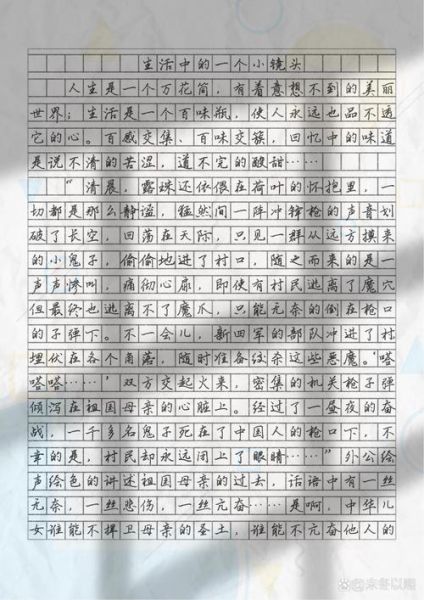 生活中的一个小镜头
人生是一个万花筒，有着意想不到的美丽
世界；生活是一个百味瓶，使人永远也品不透
它的心。百感交集、百味交簇，回忆中的味道
是说不清的苦涩，道不完的酸甜……
“清晨，露珠还依偎在荷叶的怀抱里，一
切都是那么静谧，猛然间一阵冲锋枪的声音划
破了长空，回荡在天际，只见一群从远方摸来
的小鬼子，偷偷地进了村口，随之而来的是一
声声惨叫，痛彻心扉，即使有村民逃离了魔穴
但最终也逃离不了魔爪，只能无奈的倒在枪口
的子弹下。不一会儿，新四军的部队冲进了村
埋伏在各个角落，随时准备绞杀这些恶魔。‘嗒
嗒嗒……’双方交起火来，密集的机关枪子弹
倾泻在祖国母亲的心脏上。经过了一昼夜的奋
战，一千多名鬼子死在了中国人的枪口下，不
幸的是，村民却永远闭上了眼睛……”外公绘
声绘色的讲述祖国母亲的过去，话语中有一丝
无奈，一丝悲伤，一丝亢奋……是啊，中华儿
女谁能不捍卫母亲的圣土，谁能不亢奋他人的